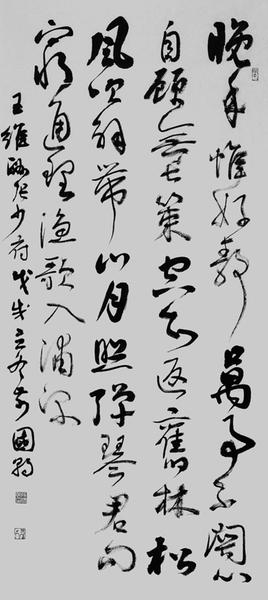 晚年惟好靜萬事不關心
自顧無長策空知返舊林松
風吹解帶山月照彈琴君問
窮通理漁歌入浦深
王維酬張少府戊戌立冬國